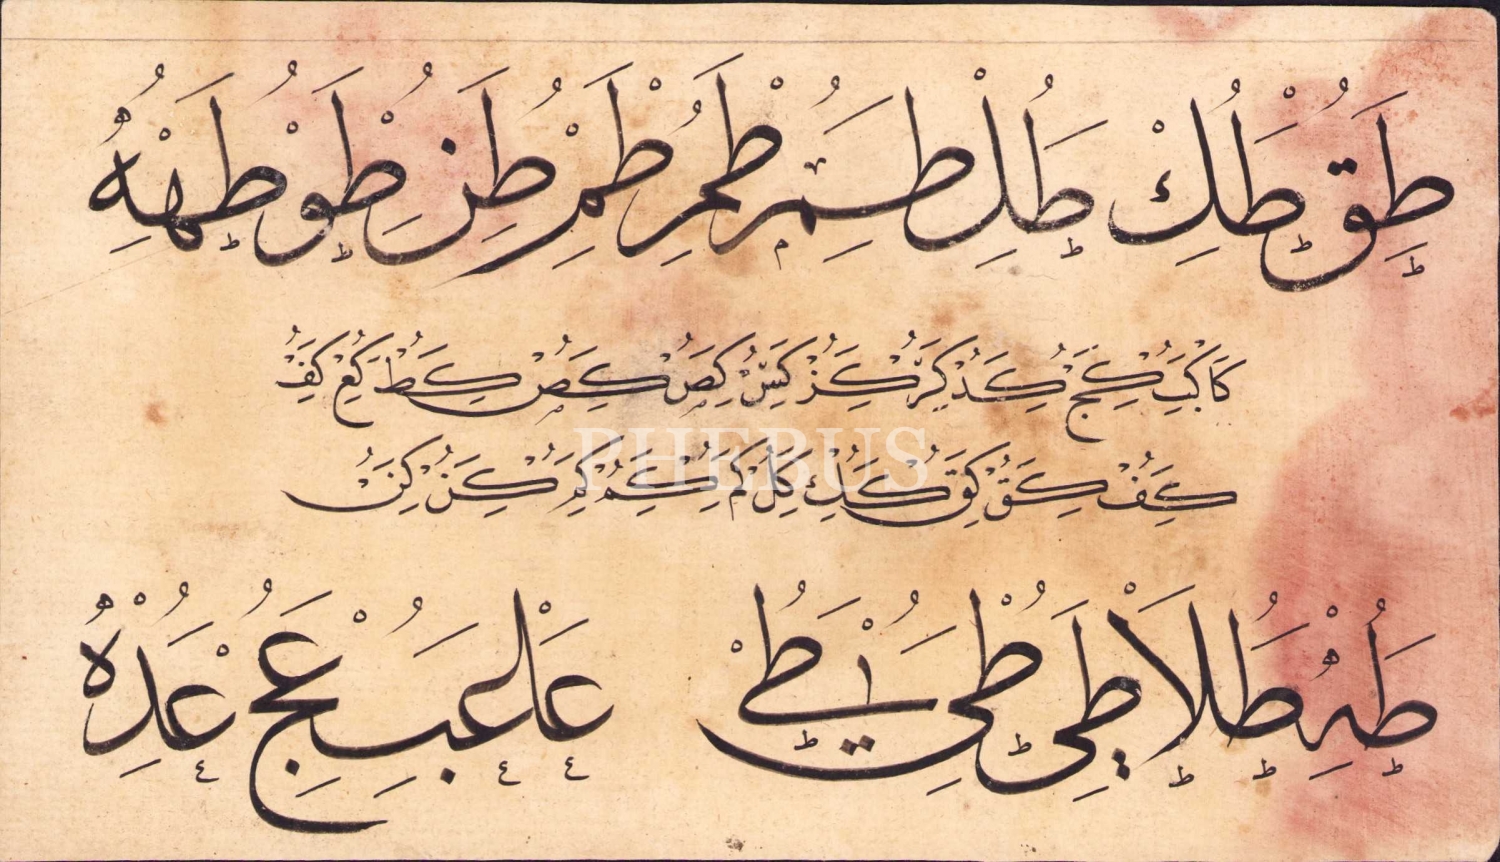 طق طك طل طم طم طم طن طو طه
كا كب كج كد كر كر كس كص كص كط كع كف
كف كق كق كك كل كم كم كم كن كن
طه طلا طى طى طى عا عب عج عد
PHEBUS